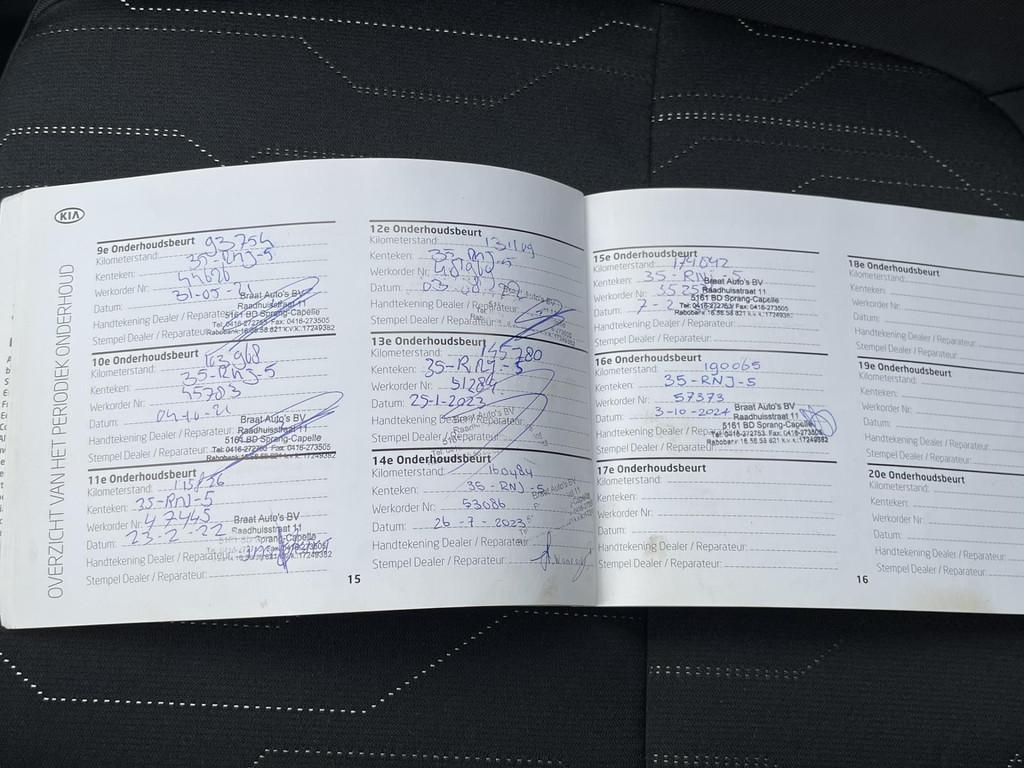 KIA
OVERZICHT VAN HET PERIODIEK ONDERHOUD
9e Onderhoudsbeurt 93754
Kilometerstand:
Kenteken: 35-RNJ-5
Werkorder Nr:
Datum: 31-05-21
Handtekening Dealer / Reparateur:
Stempel Dealer / Reparateur:
Braat Auto's BV
Raadhuisstraat 11
5161 BD Sprang-Capelle
Tel: 0416-272753 Fax: 0416-273505
Rabobank 16.58.58.821 K.v.K.:17249382
10e Onderhoudsbeurt
Kilometerstand:
Kenteken: 35-RNJ-5
Werkorder Nr: 45783
Datum:
Handtekening Dealer / Reparateur:
Stempel Dealer / Reparateur:
Braat Auto's BV
Raadhuisstraat 11
5161 BD Sprang-Capelle
Tel: 0416-272753 Fax: 0416-273505
Rabobank 16.58.58.821 K.v.K.:17249382
11e Onderhoudsbeurt
Kilometerstand:
Kenteken: 35-RNJ-5
Werkorder Nr: 47445
Datum: 23-2-22
Handtekening Dealer / Reparateur:
Stempel Dealer / Reparateur:
Braat Auto's BV
Raadhuisstraat 11
5161 BD Sprang-Capelle
15
12e Onderhoudsbeurt
Kilometerstand:
Kenteken: 35-RNJ-5
Werkorder Nr:
Datum:
Handtekening Dealer / Reparateur:
Stempel Dealer / Reparateur:
13e Onderhoudsbeurt
Kilometerstand: 145780
Kenteken: 35-RNJ-5
Werkorder Nr: 51284
Datum: 25-1-2023
Handtekening Dealer / Reparateur:
Stempel Dealer / Reparateur:
Braat Auto's BV
14e Onderhoudsbeurt
Kilometerstand: 160484
Kenteken: 35-RNJ-5
Werkorder Nr: 53086
Datum: 26-7-2023
Handtekening Dealer / Reparateur:
Stempel Dealer / Reparateur:
Braat Auto's BV
15e Onderhoudsbeurt
Kilometerstand: 174642
Kenteken: 35-RNJ-5
Werkorder Nr:
Datum:
Handtekening Dealer / Reparateur:
Stempel Dealer / Reparateur:
Braat Auto's BV
Raadhuisstraat 11
5161 BD Sprang-Capelle
Tel: 0416-272753 Fax: 0416-273505
Rabobank 16.58.58.821 K.v.K.:17249382
16e Onderhoudsbeurt
Kilometerstand: 190065
Kenteken: 35-RNJ-5
Werkorder Nr: 57373
Datum: 3-10-2024
Handtekening Dealer / Reparateur:
Stempel Dealer / Reparateur:
Braat Auto's BV
Raadhuisstraat 11
5161 BD Sprang-Capelle
Tel: 0416-272753 Fax: 0416-273505
Rabobank 16.58.58.821 K.v.K.:17249382
17e Onderhoudsbeurt
Kilometerstand:
Kenteken:
Werkorder Nr:
Datum:
Handtekening Dealer / Reparateur:
Stempel Dealer / Reparateur:
18e Onderhoudsbeurt
Kilometerstand:
Kenteken:
Werkorder Nr:
Datum:
Handtekening Dealer / Reparateur:
Stempel Dealer / Reparateur:
19e Onderhoudsbeurt
Kilometerstand:
Kenteken:
Werkorder Nr:
Datum:
Handtekening Dealer / Reparateur:
Stempel Dealer / Reparateur:
20e Onderhoudsbeurt
Kilometerstand:
Kenteken:
Werkorder Nr:
Datum:
Handtekening Dealer / Reparateur:
Stempel Dealer / Reparateur:
16